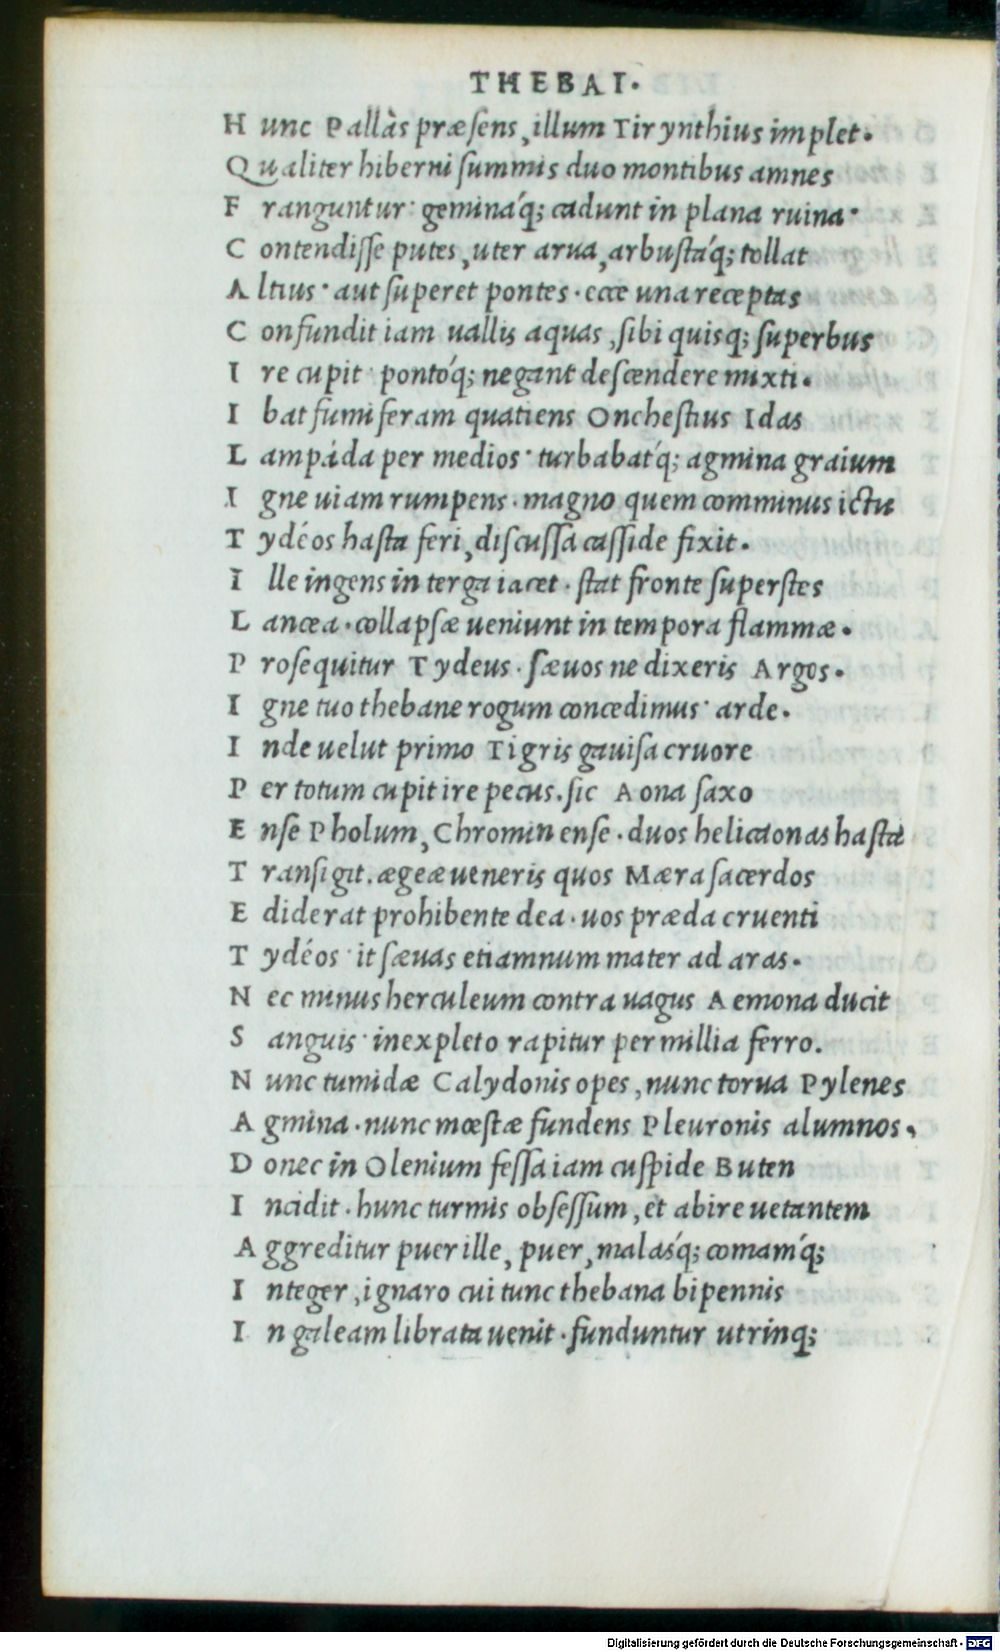 THEBAI.
H unc Pallàs præsens, illum Tirynthius implet.
Q ualiter hiberni summis duo montibus amnes
F ranguntur· geminaq́; cadunt in plana ruina·
C ontendisse putes, uter arua, arbustaq́; tollat
A ltius· aut superet pontes· ecce una receptas
C onfundit iam uallis aquas, sibi quisq; superbus
I re cupit· pontóq́; negant descendere mixti.
I bat fumiferam quatiens Onchestius Idas
L ampáda per medios· turbabatq́; agmina graium
I gne uiam rumpens· magno quem comminus ictu
T ydéos hasta feri, discussa casside fixit.
I lle ingens in terga iacet· stat fronte superstes
L ancea· collapsæ ueniunt in tempora flammæ.
P rosequitur Tydeus· sæuos ne dixeris Argos.
I gne tuo thebane rogum concedimus· arde.
I nde uelut primo Tigris gauisa cruore
P er totum cupit ire pecus. sic Aona saxo
E nse Pholum, Chromin ense· duos helicaonas hasta
T ransigit. ægeæ ueneris quos Mæra sacerdos
E diderat prohibente dea· uos præda cruenti
T ydéos· it sæuas etiamnum mater ad aras.
N ec minus herculeum contra uagus Aemona ducit
S anguis· inexpleto rapitur per millia ferro.
N unc tumidæ Calydonis opes, nunc torua Pylenes
A gmina· nunc mœstæ fundens Pleuronis alumnos,
D onec in Olenium fessa iam cuspide Buten
I ncidit· hunc turmis obsessum, et abire uetantem
A ggreditur puer ille, puer, malasq́; comamq́;
I nteger, ignaro cui tunc thebana bipennis
I n galeam librata uenit· funduntur utrinq;
Digitalisierung gefördert durch die Deutsche Forschungsgemeinschaft - DFG